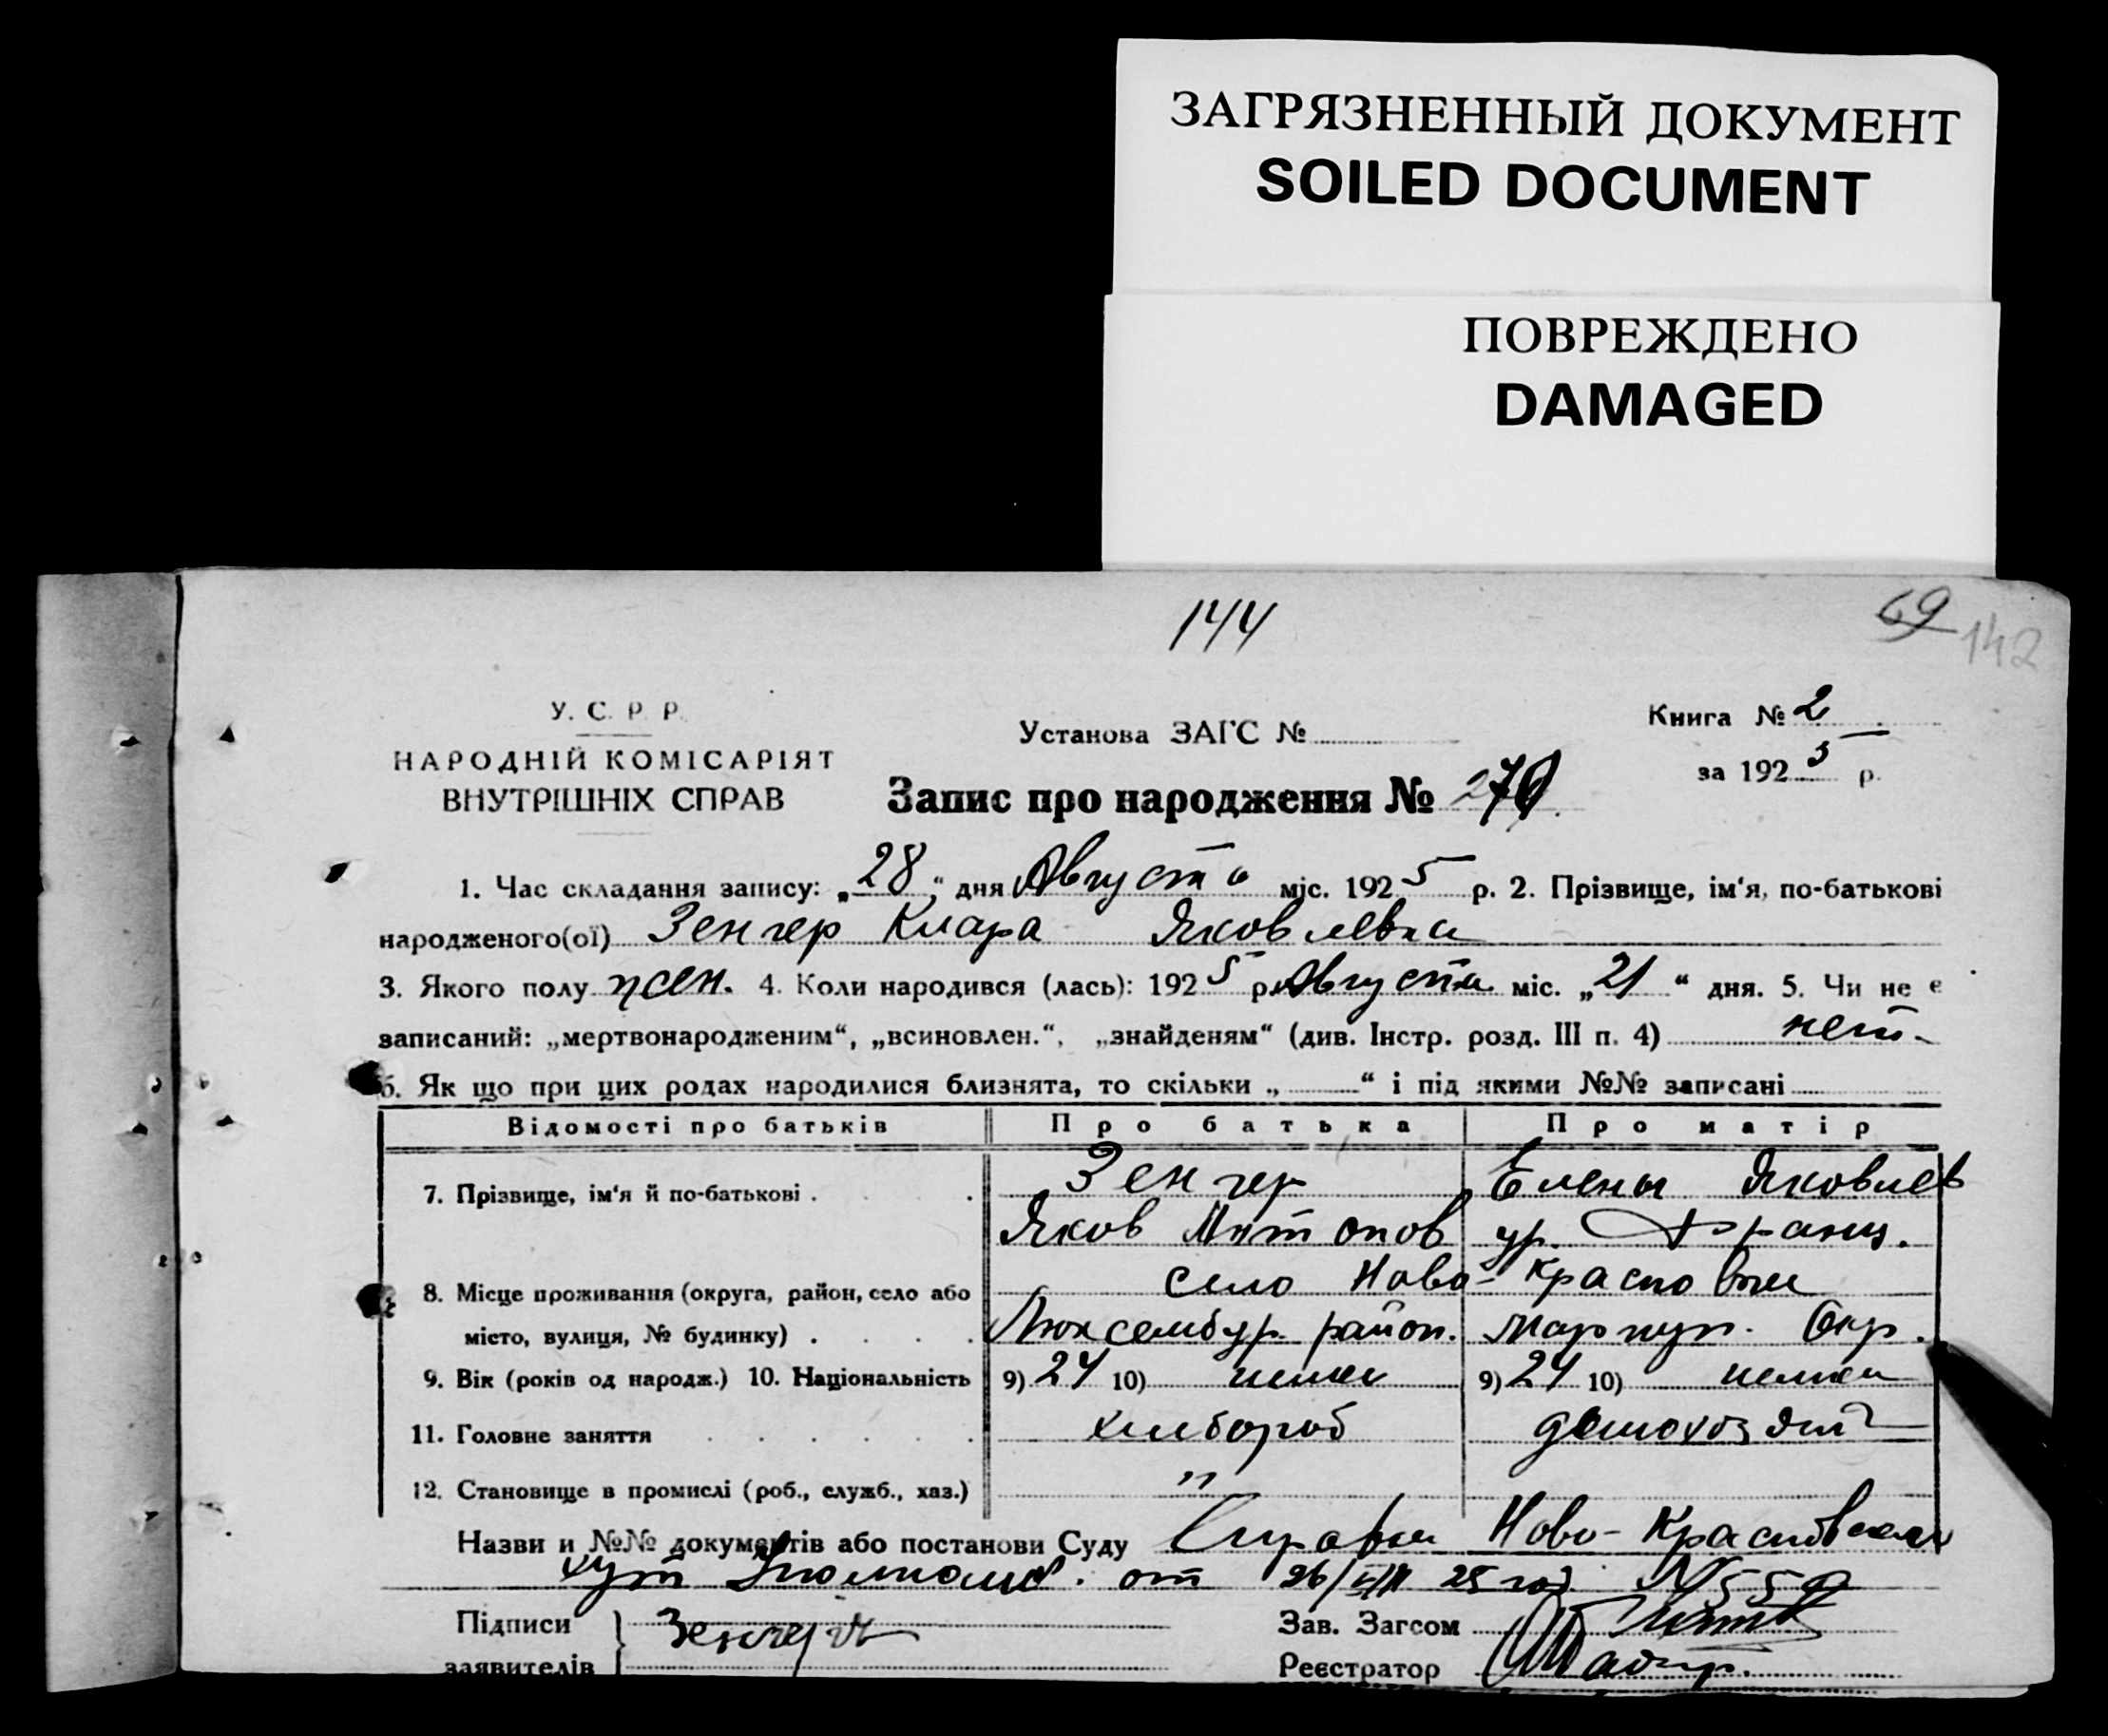 ЗАГРЯЗНЕННЫЙ ДОКУМЕНТ
SOILED DOCUMENT
ПОВРЕЖДЕНО
DAMAGED
144
69 142
У. С. Р. Р.
НАРОДНІЙ КОМІСАРІЯТ
ВНУТРІШНІХ СПРАВ
Установа ЗАГС №
Запис про народження №
Книга № 2
за 1925 р.
1. Час складання запису: „28“ дня Августа міс. 1925 р. 2. Прізвище, ім‘я, по-батькові
народженого(ої) Зенгер Клара Яковлевна
3. Якого полу жен. 4. Коли народився (лась): 1925 р. Августа міс. „21“ дня. 5. Чи не є
записаний: „мертвонародженим“, „всиновлен.“, „знайденям“ (див. Інстр. розд. III п. 4) нет.
6. Як що при цих родах народилися близнята, то скільки „ “ і під якими №№ записані
Відомості про батьків Про батька Про матір
7. Прізвище, ім‘я й по-батькові . Зенгер Елена Яковлев
Яков Антонов ур. Франц.
8. Місце проживання (округа, район, село або село Ново-Красновка
місто, вулиця, № будинку) . Люксембур. район. Мариуп. Окр.
9. Вік (років од народж.) 10. Національність 9) 24 10) немец 9) 24 10) немка
11. Головне заняття хлебороб домохозяй
12. Становище в промислі (роб., служб., хаз.) "
Назви и №№ документів або постанови Суду Справка Ново-Красновской
от 26/VIII 25 год. №
Підписи Зенгер Зав. Загсом
заявителів Реєстратор